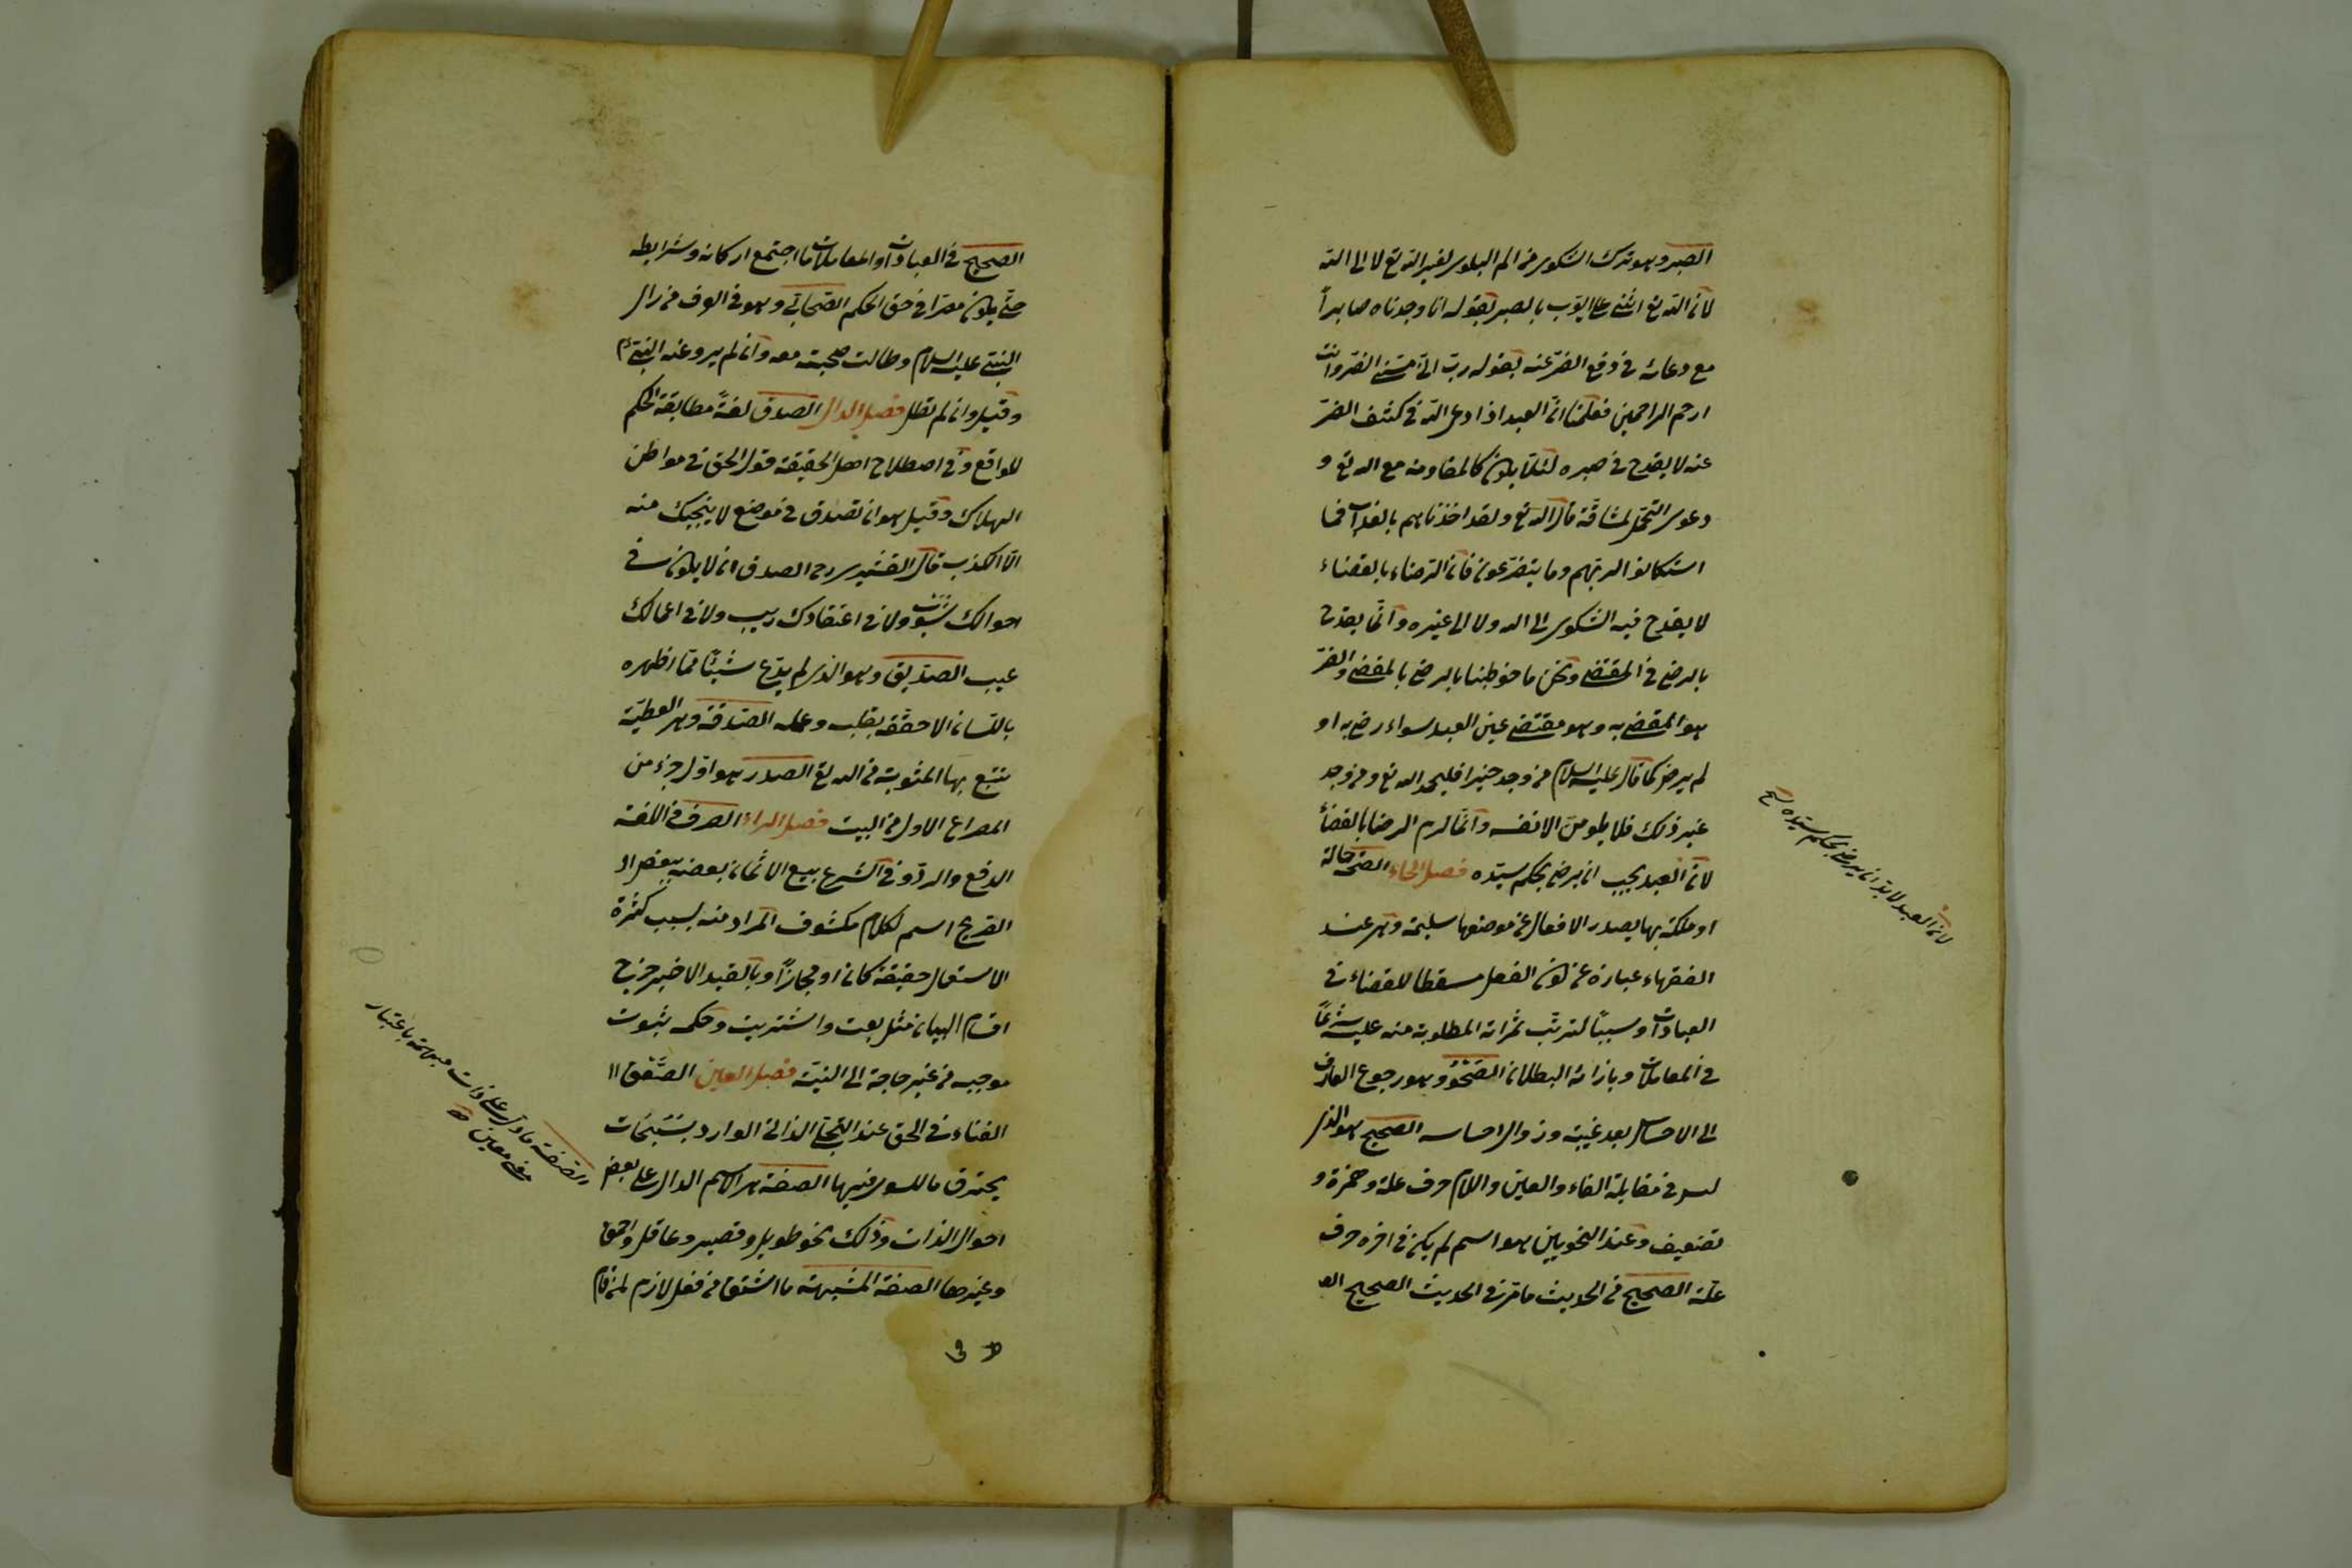 الصبر وهو ترك الشكوى من الم البلوى لغير الله تع لا الى الله
لان الله تع اثنى على ايوب بالصبر بقوله انا وجدناه صابراً
مع دعائه في دفع الضر عنه بقوله رب انى مسنى الضر وانت
ارحم الراحمين فعلمنا انّ العبد اذا دعى الله في كشف الضرّ
عنه لا يقدح في صبره لئلا يكون كالمقاومة مع الله تع و
دعوى التحمل لمشاقه قال الله تع ولقد اخذناهم بالعذاب فما
استكانوا لربهم وما يتضرعون فان الرضاء بالقضاء
لا يقدح فيه الشكوى الى الله ولا الى غيره وانّما يقدح
بالرضى في المقتضى ونحن ما خوطبنا بالرضى بالمقضى والضرّ
هو المقضى به وهو مقتضى عين العبد سواء رضى به او
لم يرض كما قال عليه السلام من وجد خيرا فليحمد الله تع ومن وجد
غير ذلك فلا يلومنّ الا نفسه وانّما لزم الرضا بالقضاء
لان العبد يجب ان يرضى بحكم سيّده فصل الحاء الصحّة حالة
او ملكة بها يصدر الافعال عن موضعها سليمة وهى عند
الفقهاء عبارة عن كون الفعل مسقطا للقضاء في
العبادات او سببًا لترتّب ثمراته المطلوبة منه عليه شرعًا
في المعاملات وبازائه البطلان الصَّحْوُ وهو رجوع العارف
الى الاحساس بعد غيبته وزوال احساسه الصحيح هو الذى
ليس في مقابلة الفاء والعين واللام حرف علة وهمزة و
تضعيف وعند النحويين هو اسم لم يكن في اخره حرف
علة الصحيح في الحديث ما مر في الحديث الصحيح
لان العبد لا بد ان يرضى بحكم سيّده نسخ
الصحيح في العبادات او المعاملات ما اجتمع اركانه وشرايطه
حتّى يكون معتبرا في حق الحكم الصّحابى وهو في العرف من رأى
النبىّ عليه السلام وطالت صحبته معه وان لم يرو عنه النبىّ م
وقيل وان لم تطل فصل الدال الصدق لغةً مطابقة الحكم
للواقع وفى اصطلاح اهل الحقيقة قول الحق في مواطن
الهلاك وقيل هو ان تصدق في موضع لا ينجيك منه
الا الكذب قال القشيرى رح الصدق ان لا يكون في
احوالك شوب ولا في اعتقادك ريب ولا في اعمالك
عيب الصدّيق وهو الذى لم يدّع شيئًا ممّا اظهره
باللسان الا حققه بقلبه وعمله الصّدقة وهى العطيّة
تبتغ بها المثوبة من الله تع الصدر هو اوّل جزء من
المصراع الاول من البيت فصل الراء الصرف في اللغة
الدفع والرد وفى الشرع بيع الاثمان بعضه ببعض
الصريح اسم لكلام مكشوف المراد منه بسبب كثرة
الاستعمال حقيقة كان او مجازاً وبالقيد الاخير خرج
اقسام البيان مثل بعت واشتريت وحكمه ثبوت
موجبه من غير حاجة الى النية فصل العين الصَّعْق
الفناء في الحق عند التجلّى الذاتى الوارد بسبحات
يحترق ما للسوى فيها الصفة هى الاسم الدال على بعض
احوال الذات وذلك نحو طويل وقصير وعاقل واحمق
وغيرها الصفة المشبهة ما اشتق من فعل لازم لمن قام
الصفة ما دل على ذات مبهمة باعتبار
معنى معين